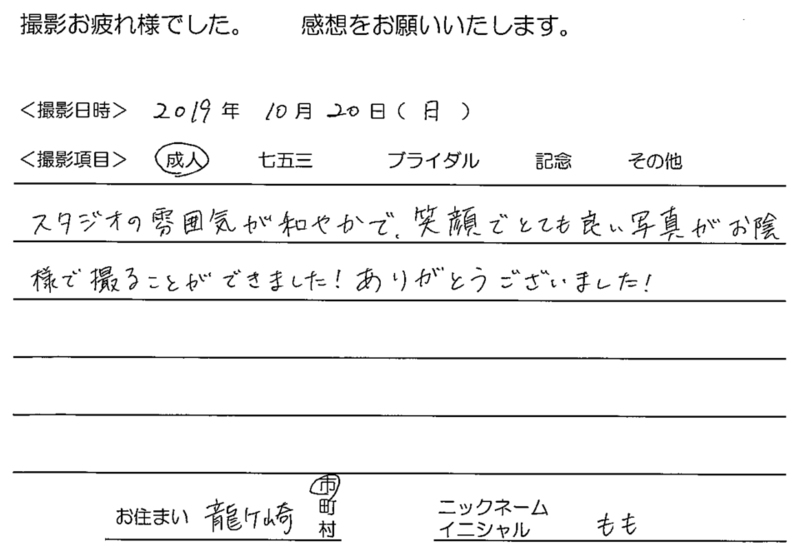 撮影お疲れ様でした。　　感想をお願いいたします。
＜撮影日時＞ 2019年 10月 20日（日）
＜撮影項目＞ 成人 七五三 ブライダル 記念 その他
スタジオの雰囲気が和やかで、笑顔でとても良い写真がお陰
様で撮ることができました！ありがとうございました！
お住まい 龍ケ崎 市町村
ニックネーム
イニシャル もも